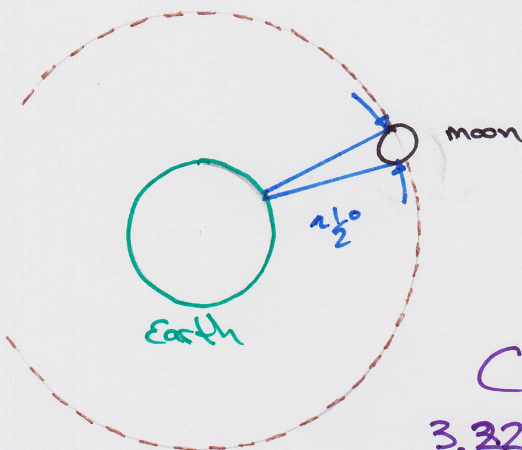 moon
~½°
Earth
C
3.32